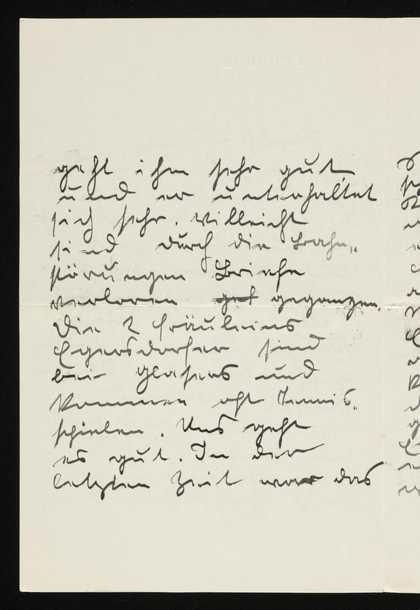 geht ihm sehr gut
und er unterhaltet
sich sehr. Villeicht
sind durch die Bahn„
störungen Briefe
verloren gegangen.
Die 2 Fräuleins
Egersdorfer sind
bei Glasers und
kommen oft Tennis„
spielen. Uns geht
es gut. In der
letzten Zeit war das